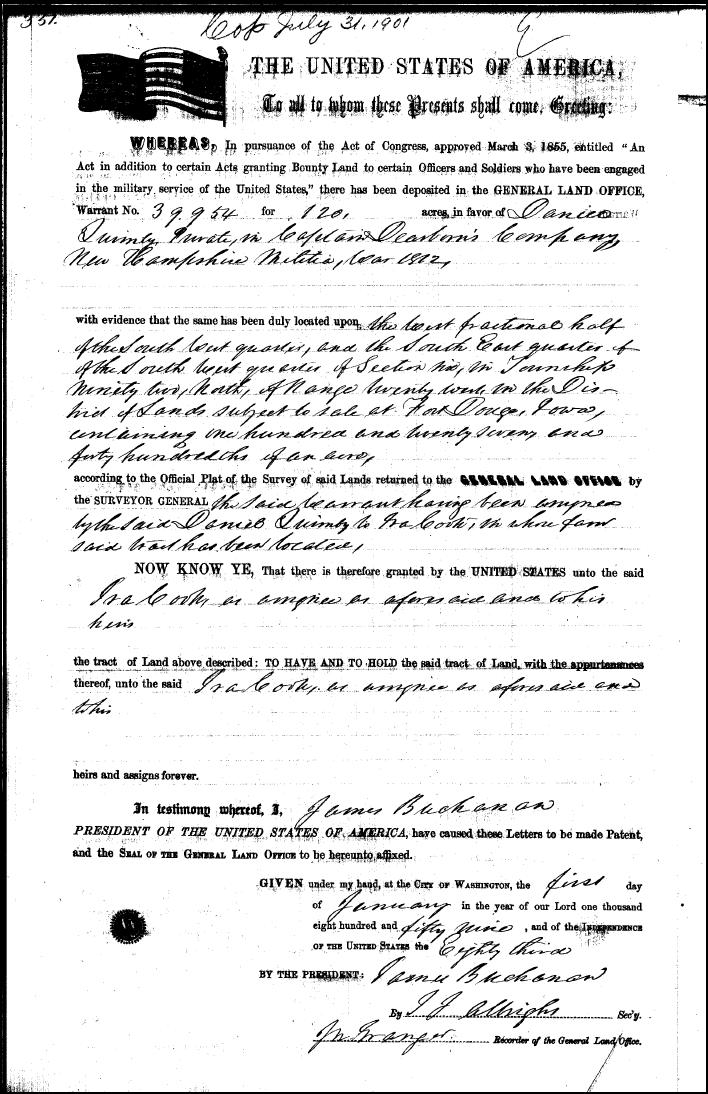 351.
Cop July 31, 1901
THE UNITED STATES OF AMERICA,
To all to whom these Presents shall come, Greeting:
WHEREAS, In pursuance of the Act of Congress, approved March 3, 1855, entitled "An
Act in addition to certain Acts granting Bounty Land to certain Officers and Soldiers who have been engaged
in the military service of the United States," there has been deposited in the GENERAL LAND OFFICE,
Warrant No. 39954 for 120. acres, in favor of Daniel
Quimby, Private, in Captain Dearborn's Company,
New Hampshire Militia, War 1812,
with evidence that the same has been duly located upon the West fractional half
of the South West quarter, and the South East quarter of
of the South West quarter of Section six, in Township
Ninety two, North, of Range twenty in the Dis-
trict of Lands subject to sale at Fort Dodge, Iowa,
containing one hundred and twenty seven and
forty hundredths of an acre,
according to the Official Plat of the Survey of said Lands returned to the GENERAL LAND OFFICE by
the SURVEYOR GENERAL the said Warrant having been assigned
by the said Daniel Quimby to Ira Cook, in whose favor
said tract has been located,
NOW KNOW YE, That there is therefore granted by the UNITED STATES unto the said
Ira Cook, as assignee as aforesaid and to his
heirs
the tract of Land above described: TO HAVE AND TO HOLD the said tract of Land, with the appurtenances
thereof, unto the said Ira Cook, as assignee as aforesaid and
to his
heirs and assigns forever.
In testimony whereof, I, James Buchanan
PRESIDENT OF THE UNITED STATES OF AMERICA, have caused these Letters to be made Patent,
and the SEAL OF THE GENERAL LAND OFFICE to be hereunto affixed.
GIVEN under my hand, at the CITY OF WASHINGTON, the first day
of January in the year of our Lord one thousand
eight hundred and fifty nine, and of the INDEPENDENCE
OF THE UNITED STATES the Eighty third
BY THE PRESIDENT: James Buchanan
By J. J. Albright Sec'y.
J. N. Granger Recorder of the General Land Office.